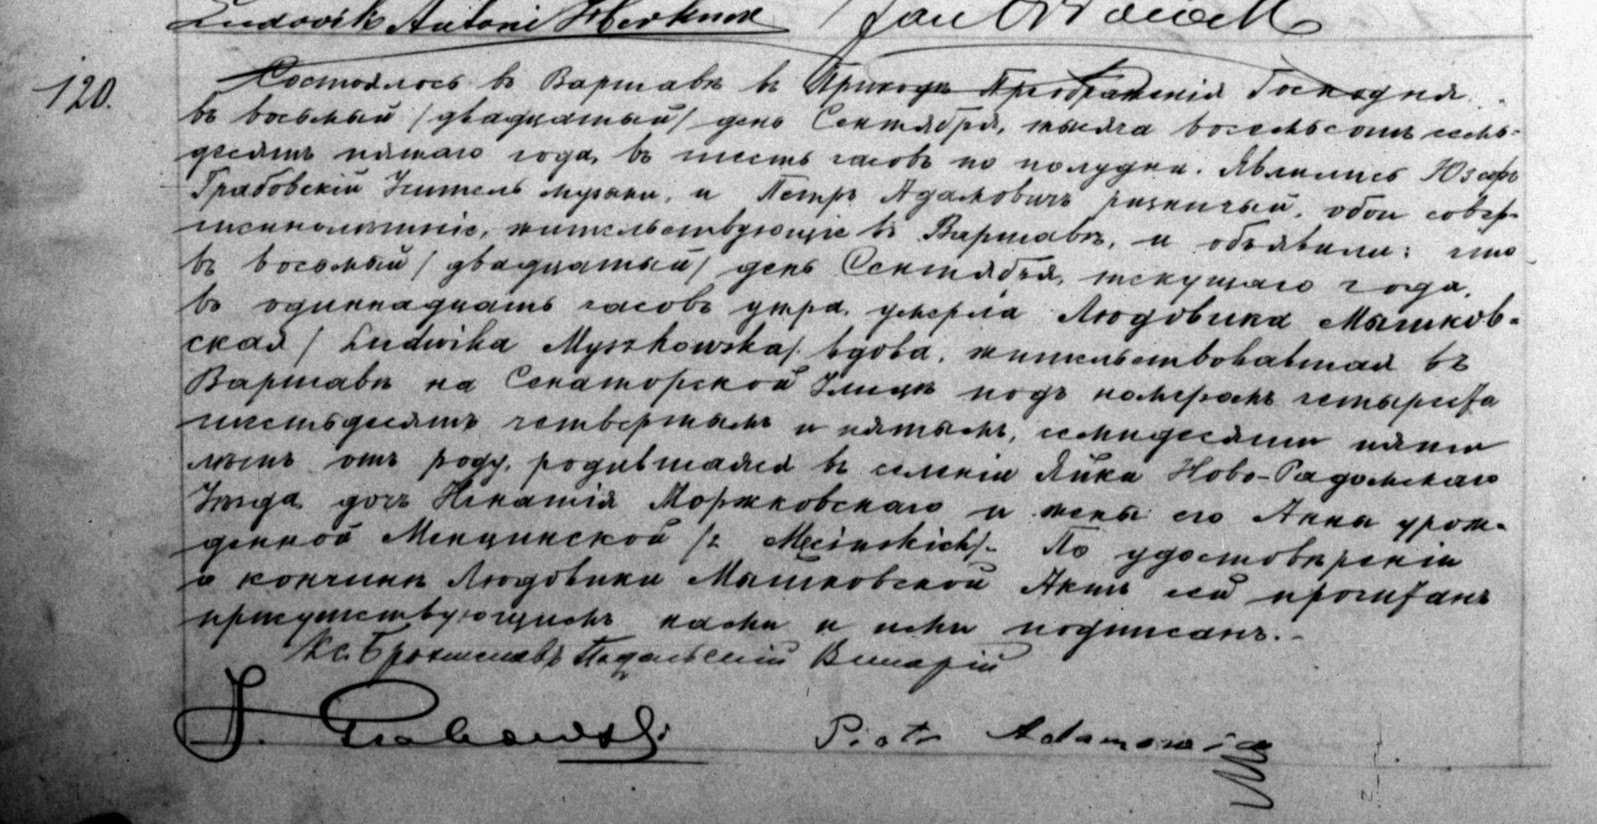 Ludovik Antoni Herkner Jan
120.
Состоялось въ Варшавѣ въ Приходѣ Преображенія Господня
въ восьмый /двадцатый/ день Сентября, тысяча восемьсотъ семь-
десятъ пятаго года, въ шесть часовъ по полудни. Явились Юзефъ
Грабовскій Учитель музыки, и Петръ Адамовичъ ризничый, обои совер-
шеннолѣтніе, жительствующіе въ Варшавѣ, и объявили: что
въ восьмый /двадцатый/ день Сентября, текущаго года,
въ одиннадцать часовъ утра, умерла Людовика Мышков-
ская /Ludwika Myszkowska/ вдова, жительствовавшая въ
Варшавѣ на Сенаторской Улицѣ подъ номеромъ четыреста
шестьдесятъ четвертымъ и пятымъ, семидесяти пяти
лѣтъ отъ роду, родившаяся въ селеніи Яйка Ново-Радомскаго
Уѣзда, дочь Игнатія Моржковскаго и жены его Анны урож-
денной Менцинской /z Męcinskich/. По удостовѣреніи
о кончинѣ Людовики Мышковской Актъ сей прочитанъ
присутствующимъ нами и ими подписанъ.-
Кс. Брониславъ Подольскій Викарій
J. Grabowski Piotr Adamowicz